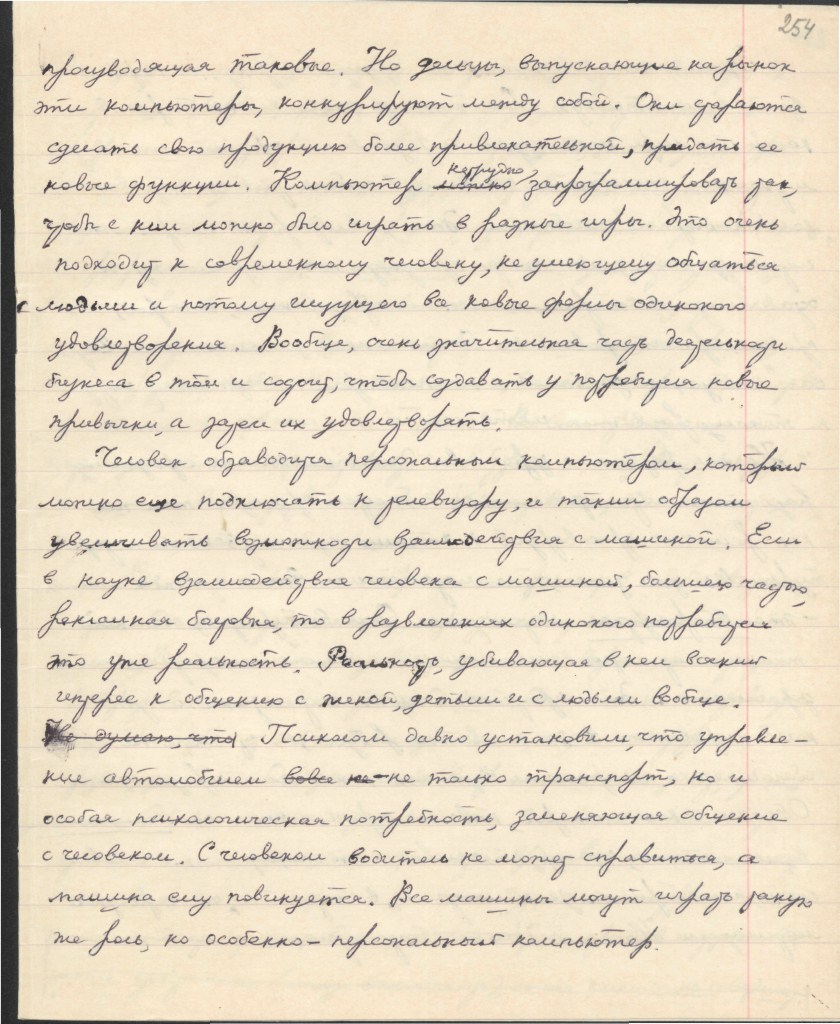 254
производящая таковые. Но дельцы, выпускающие на рынок
эти компьютеры, конкурируют между собой. Они стараются
сделать свою продукцию более привлекательной, придать ее
новые функции. Компьютер можно нетрудно запрограммировать так,
чтобы с ним можно было играть в разные игры. Это очень
подходит к современному человеку, не умеющему общаться
с людьми и потому ищущего все новые формы одинокого
удовлетворения. Вообще, очень значительная часть деятельности
бизнеса в том и состоит, чтобы создавать у потребителя новые
привычки, а затем их удовлетворять.
Человек обзаводится персональным компьютером, который
можно еще подключать к телевизору, и таким образом
увеличивать возможности взаимодействия с машиной. Если
в науке взаимодействие человека с машиной, большею частью,
рекламная болтовня, то в развлечениях одинокого потребителя
это уже реальность. Реальность, убивающая в нем всякий
интерес к общению с женой, детьми и с людьми вообще.
Не думаю, что Психологи давно установили, что управле-
ние автомобилем вовсе не - не только транспорт, но и
особая психологическая потребность, заменяющая общение
с человеком. С человеком водитель не может справиться, а
машина ему повинуется. Все машины могут играть такую
же роль, но особенно - персональный компьютер.